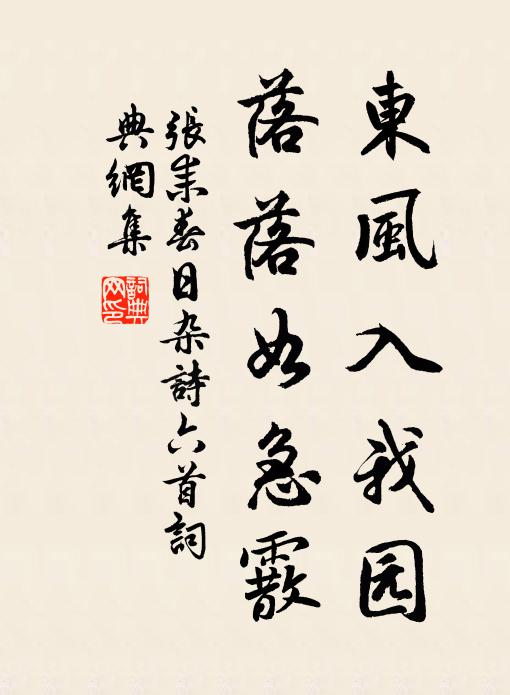 東風入我园
落落如急霰
張耒春日杂詩六首詞
典網集
詞典
网印